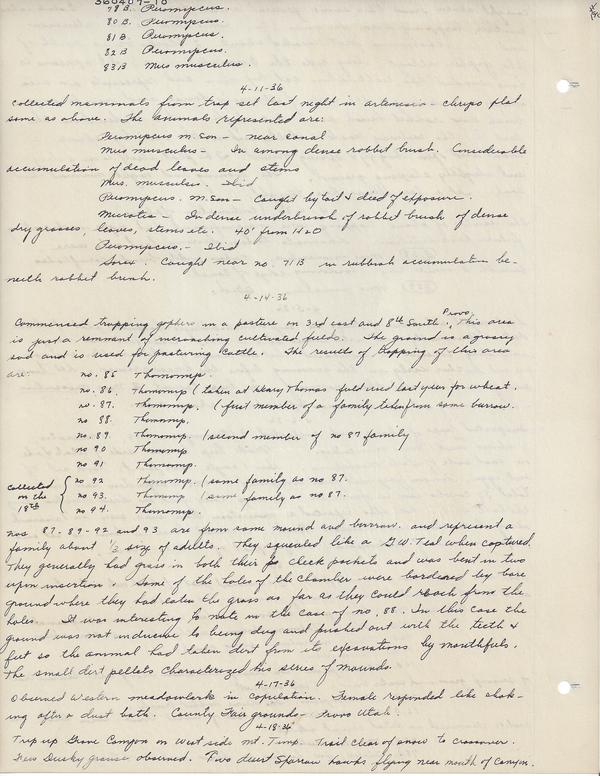 360407-10
78 B. Peromyscus.
80 B. Peromyscus.
81 B. Peromyscus.
82 B Peromyscus.
83 B Mus musculus.
4-11-36
Collected mammals from trap set last night in artemesia - chrysо flat
same as above. The animals represented are:
Peromyscus m. son - near canal
Mus musculus - In among dense rabbit brush. Considerable
accumulation of dead leaves and stems
Mus. musculus. Ibid
Peromyscus. m. son - Caught by tail & died of exposure.
Microtus - In dense underbrush of rabbit brush of dense
dry grasses, leaves, stems etc. 40' from H2O
Peromyscus. - Ibid
Sorex. Caught near no. 71B in rubbish accumulation be-
neath rabbit brush.
4-14-36
Commenced trapping gophers in a pasture on 3rd east and 8th South Provo. This area
is just a remnant of encroaching cultivated fields. The ground is a grassy
sod and is used for pasturing cattle. The results of trapping of this area
are:
no. 85 Thomomys.
no. 86. Thomomys (taken at Henry Thomas field used last year for wheat.
no. 87. Thomomys. (first member of a family taken from same burrow.
no 88. Thomomys.
no. 89. Thomomys. (second member of no 87 family
no 90 Thomomys
no 91 Thomomys.
Collected on the 18th
no 92 Thomomys. (same family as no 87.
no 93. Thomomys (same family as no 87.
no 94. Thomomys.
nos 87-89-92 and 93 are from same mound and burrow. and represent a
family about 1/2 size of adults. They squealed like a G.W. Teal when captured.
They generally had grass in both their cheek pockets and was bent in two
upon insertion. Some of the holes of the chamber were bordered by bare
ground where they had eaten the grass as far as they could reach from the
holes. It was interesting to note in the case of no. 88. In this case the
ground was not inducive to being dug and pushed out with the teeth &
feet so the animal had taken dirt from its excavations by mouthfuls.
The small dirt pellets characterized his series of mounds.
4-17-36
Observed Western meadowlark in copulation. Female responded like shak-
ing after a dust bath. County Fair grounds - Provo Utah.
4-18-36
Trip up Grove Canyon on West side Mt. Timp. Trail clear of snow to crossover.
Few Dusky grouse observed. Two desert Sparrow hawks flying near mouth of Canyon.